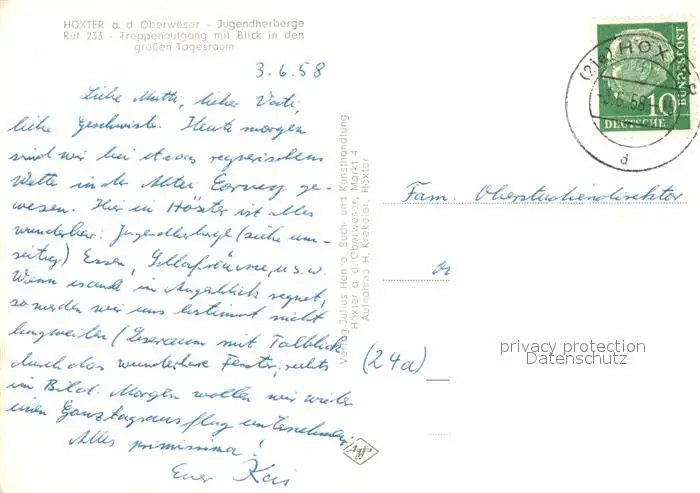 HÖXTER a. d. Oberweser - Jugendherberge
Ruf 233 - Treppenaufgang mit Blick in den
großen Tagesraum
3.6.58
Liebe Mutti, lieber Vati,
liebe Geschwister. Heute morgen
sind wir bei etwas regnerischem
Wetter in der Abtei Corvey ge-
wesen. Hier in Höxter ist alles
wunderbar: Jugendherberge (siehe um-
seitig) Essen, Schlafräume, u.s.w.
Wenn es auch im Augenblick regnet,
so werden wir uns bestimmt nicht
langweilen (Leseraum mit Talblick
durch das wunderbare Fenster, rechts
im Bild. Morgen wollen wir wieder
einen Ganztagsausflug unternehmen.
Alles primissima!
Euer Kai
Verlag Julius Henze, Buch- und Kunsthandlung
Höxter a. d. Oberweser, Markt 4
Aufnahme H. Krekeler, Höxter
(21a) HÖXTER
-3.6.58
d
10
DEUTSCHE
BUNDESPOST
Fam. Oberstudiendirektor
(24a)
privacy protection
Datenschutz